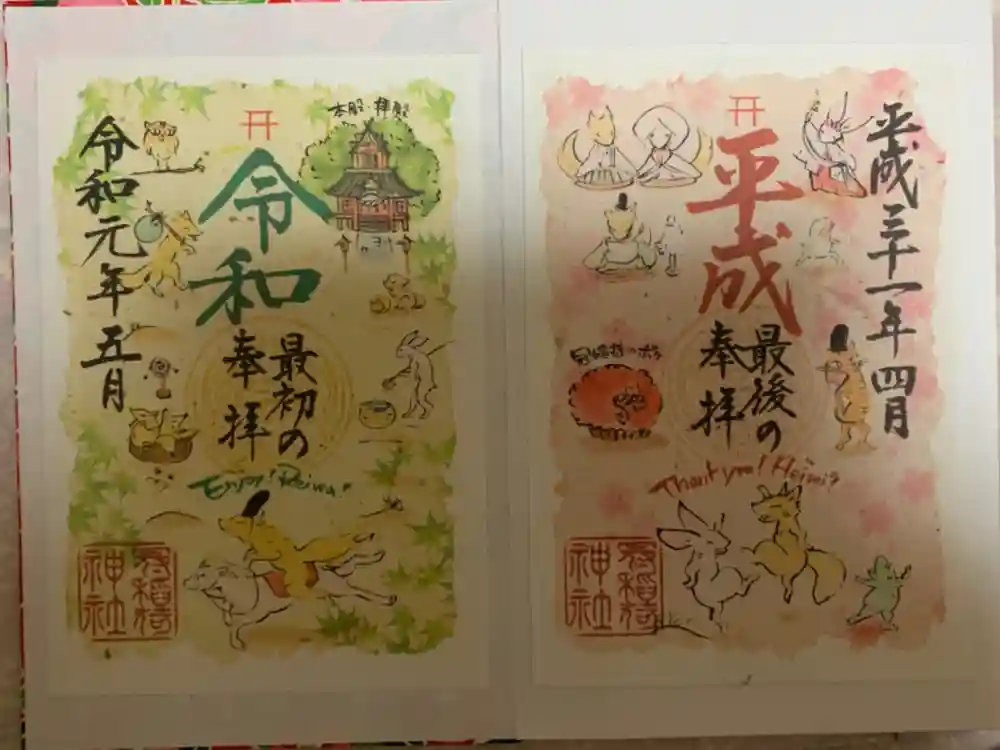 平成三十一年四月
平成
最後の
奉拝
冠稲荷のボケ
Thank you! Heisei
冠稲荷
神社
本殿・拝殿
令和
最初の
奉拝
令和元年五月
Enjoy! Reiwa!
冠稲荷
神社